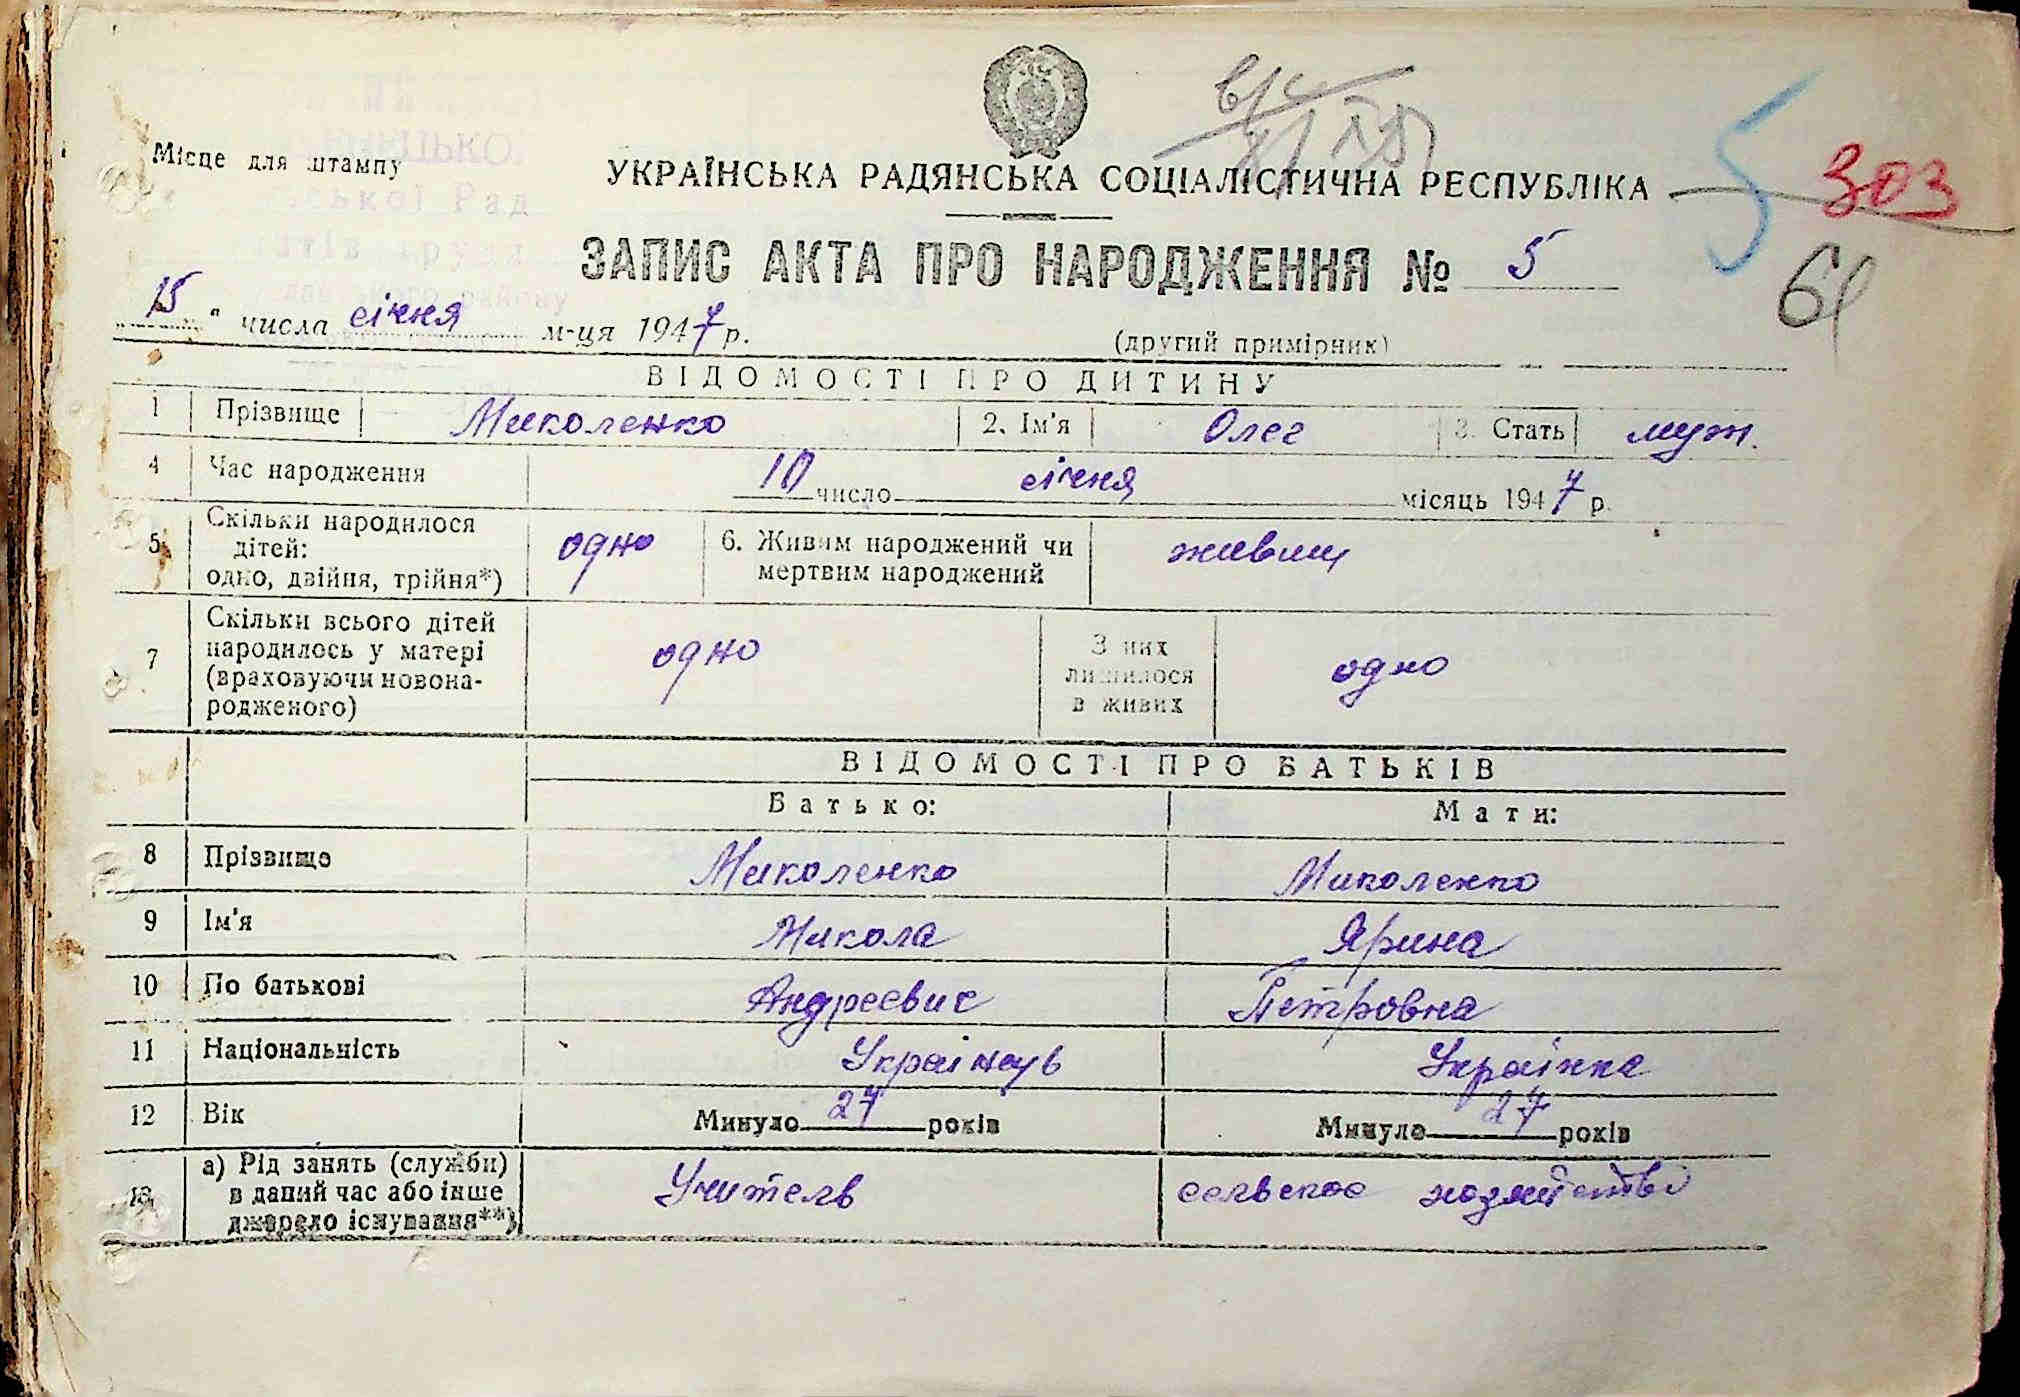 Місце для штампу
УКРАЇНСЬКА РАДЯНСЬКА СОЦІАЛІСТИЧНА РЕСПУБЛІКА
5 303
61
ЗАПИС АКТА ПРО НАРОДЖЕННЯ № 5
15 " числа січня м-ця 1947 р.
(другий примірник)
ВІДОМОСТІ ПРО ДИТИНУ
1 Прізвище Миколенко 2. Ім'я Олег 3. Стать муж.
4 Час народження 10 число січня місяць 1947 р.
5 Скільки народилося дітей: одно, двійня, трійня*) одно 6. Живим народжений чи мертвим народжений живим
7 Скільки всього дітей народилось у матері (враховуючи новонародженого) одно З них лишилося в живих одно
ВІДОМОСТІ ПРО БАТЬКІВ
Батько: Мати:
8 Прізвище Миколенко Миколенко
9 Ім'я Микола Ярина
10 По батькові Андреевич Петровна
11 Національність Українець Українка
12 Вік Минуло 27 років Минуло 27 років
13 а) Рід занять (служби) в даний час або інше джерело існування**) Учитель сельское